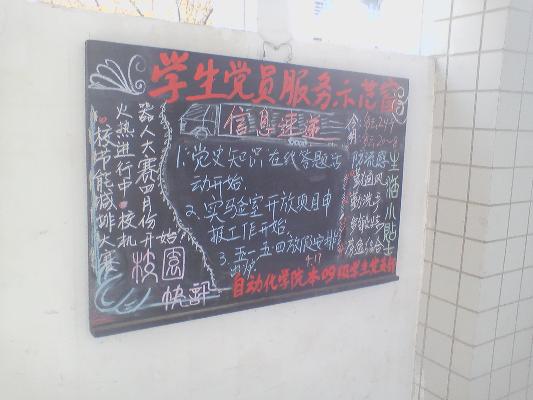 学生党员服务示范窗
信息速递
1.党史知识在线答题活
动开始.
2.实验室开放项目申
报工作开始.
3.五一五四放假安排
出台
4.17
校节能减排大赛
火热进行中 校机
器人大赛四月份开始
校园
快讯
生活小贴士
防流感
勤通风
勤洗手
自动化学院本09级学生党支部